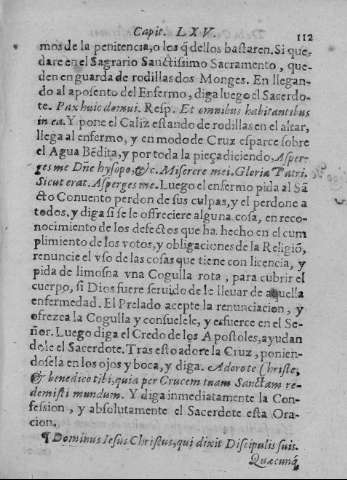 Capit. LXV. 112
mos de la penitencia, o los q̃ dellos bastaren. Si que-
dare en el Sagrario Sanctissimo Sacramento, que-
den en guarda de rodillas dos Monges. En llegan-
do al aposento del Enfermo, diga luego el Sacerdo-
te. Pax huic domui. Resp. Et omnibus habitantibus
in ea. Y pone el Caliz estando de rodillas en el altar,
llega al enfermo, y en modo de Cruz esparce sobre
el Agua Bẽdita, y por toda la pieça diciendo, Asper-
ges me Dñe hysopo, &c. Miserere mei. Gloria Patri.
Sicut erat. Asperges me. Luego el enfermo pida al Sã
cto Conuento perdon de sus culpas, y el perdone a
todos, y diga si se le offreciere alguna cosa, en reco-
nocimiento de los defectos que ha hecho en el cum
plimiento de los votos, y obligaciones de la Religiõ,
renuncie el vso de las cosas que tiene con licencia, y
pida de limosna vna Cogulla rota, para cubrir el
cuerpo, si Dios fuere seruido de le lleuar de aquella
enfermedad. El Prelado acepte la renunciacion, y
ofrezca la Cogulla y consuelele, y esfuerce en el Se-
ñor. Luego diga el Credo de los Apostoles, ayudan
dole el Sacerdote. Tras esto adore la Cruz, ponien-
dosela en los ojos y boca, y diga. Adoro te Christe,
& benedico tibi, quia per Crucem tuam Sanctam re-
demisti mundum. Y diga inmediatamente la Con-
fession, y absolutamente el Sacerdote esta Ora-
cion.
¶ Dominus Iesus Christus, qui dixit Discipulis suis.
Quæcunq̃